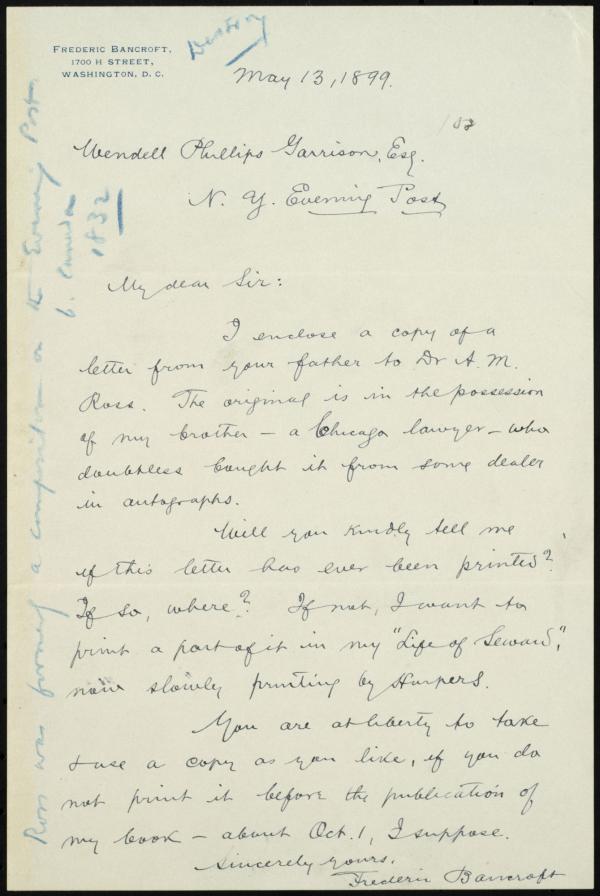 FREDERIC BANCROFT,
1700 H STREET,
WASHINGTON, D. C.
Destroy
May 13, 1899.
Wendell Phillips Garrison, Esq.
N. Y. Evening Post
My dear Sir:
I enclose a copy of a
letter from your father to Dr A. M.
Ross. The original is in the possession
of my brother — a Chicago lawyer — who
doubtless bought it from some dealer
in autographs.
Will you kindly tell me
if this letter has ever been printed?
If so, where? If not, I want to
print a part of it in my "Life of Seward",
now slowly printing by Harpers.
You are at liberty to take
& use a copy as you like, if you do
not print it before the publication of
my book — about Oct. 1, I suppose.
Sincerely yours,
Frederic Bancroft
Ross was formerly a compositor on the Evening Post.
b. Canada
1832